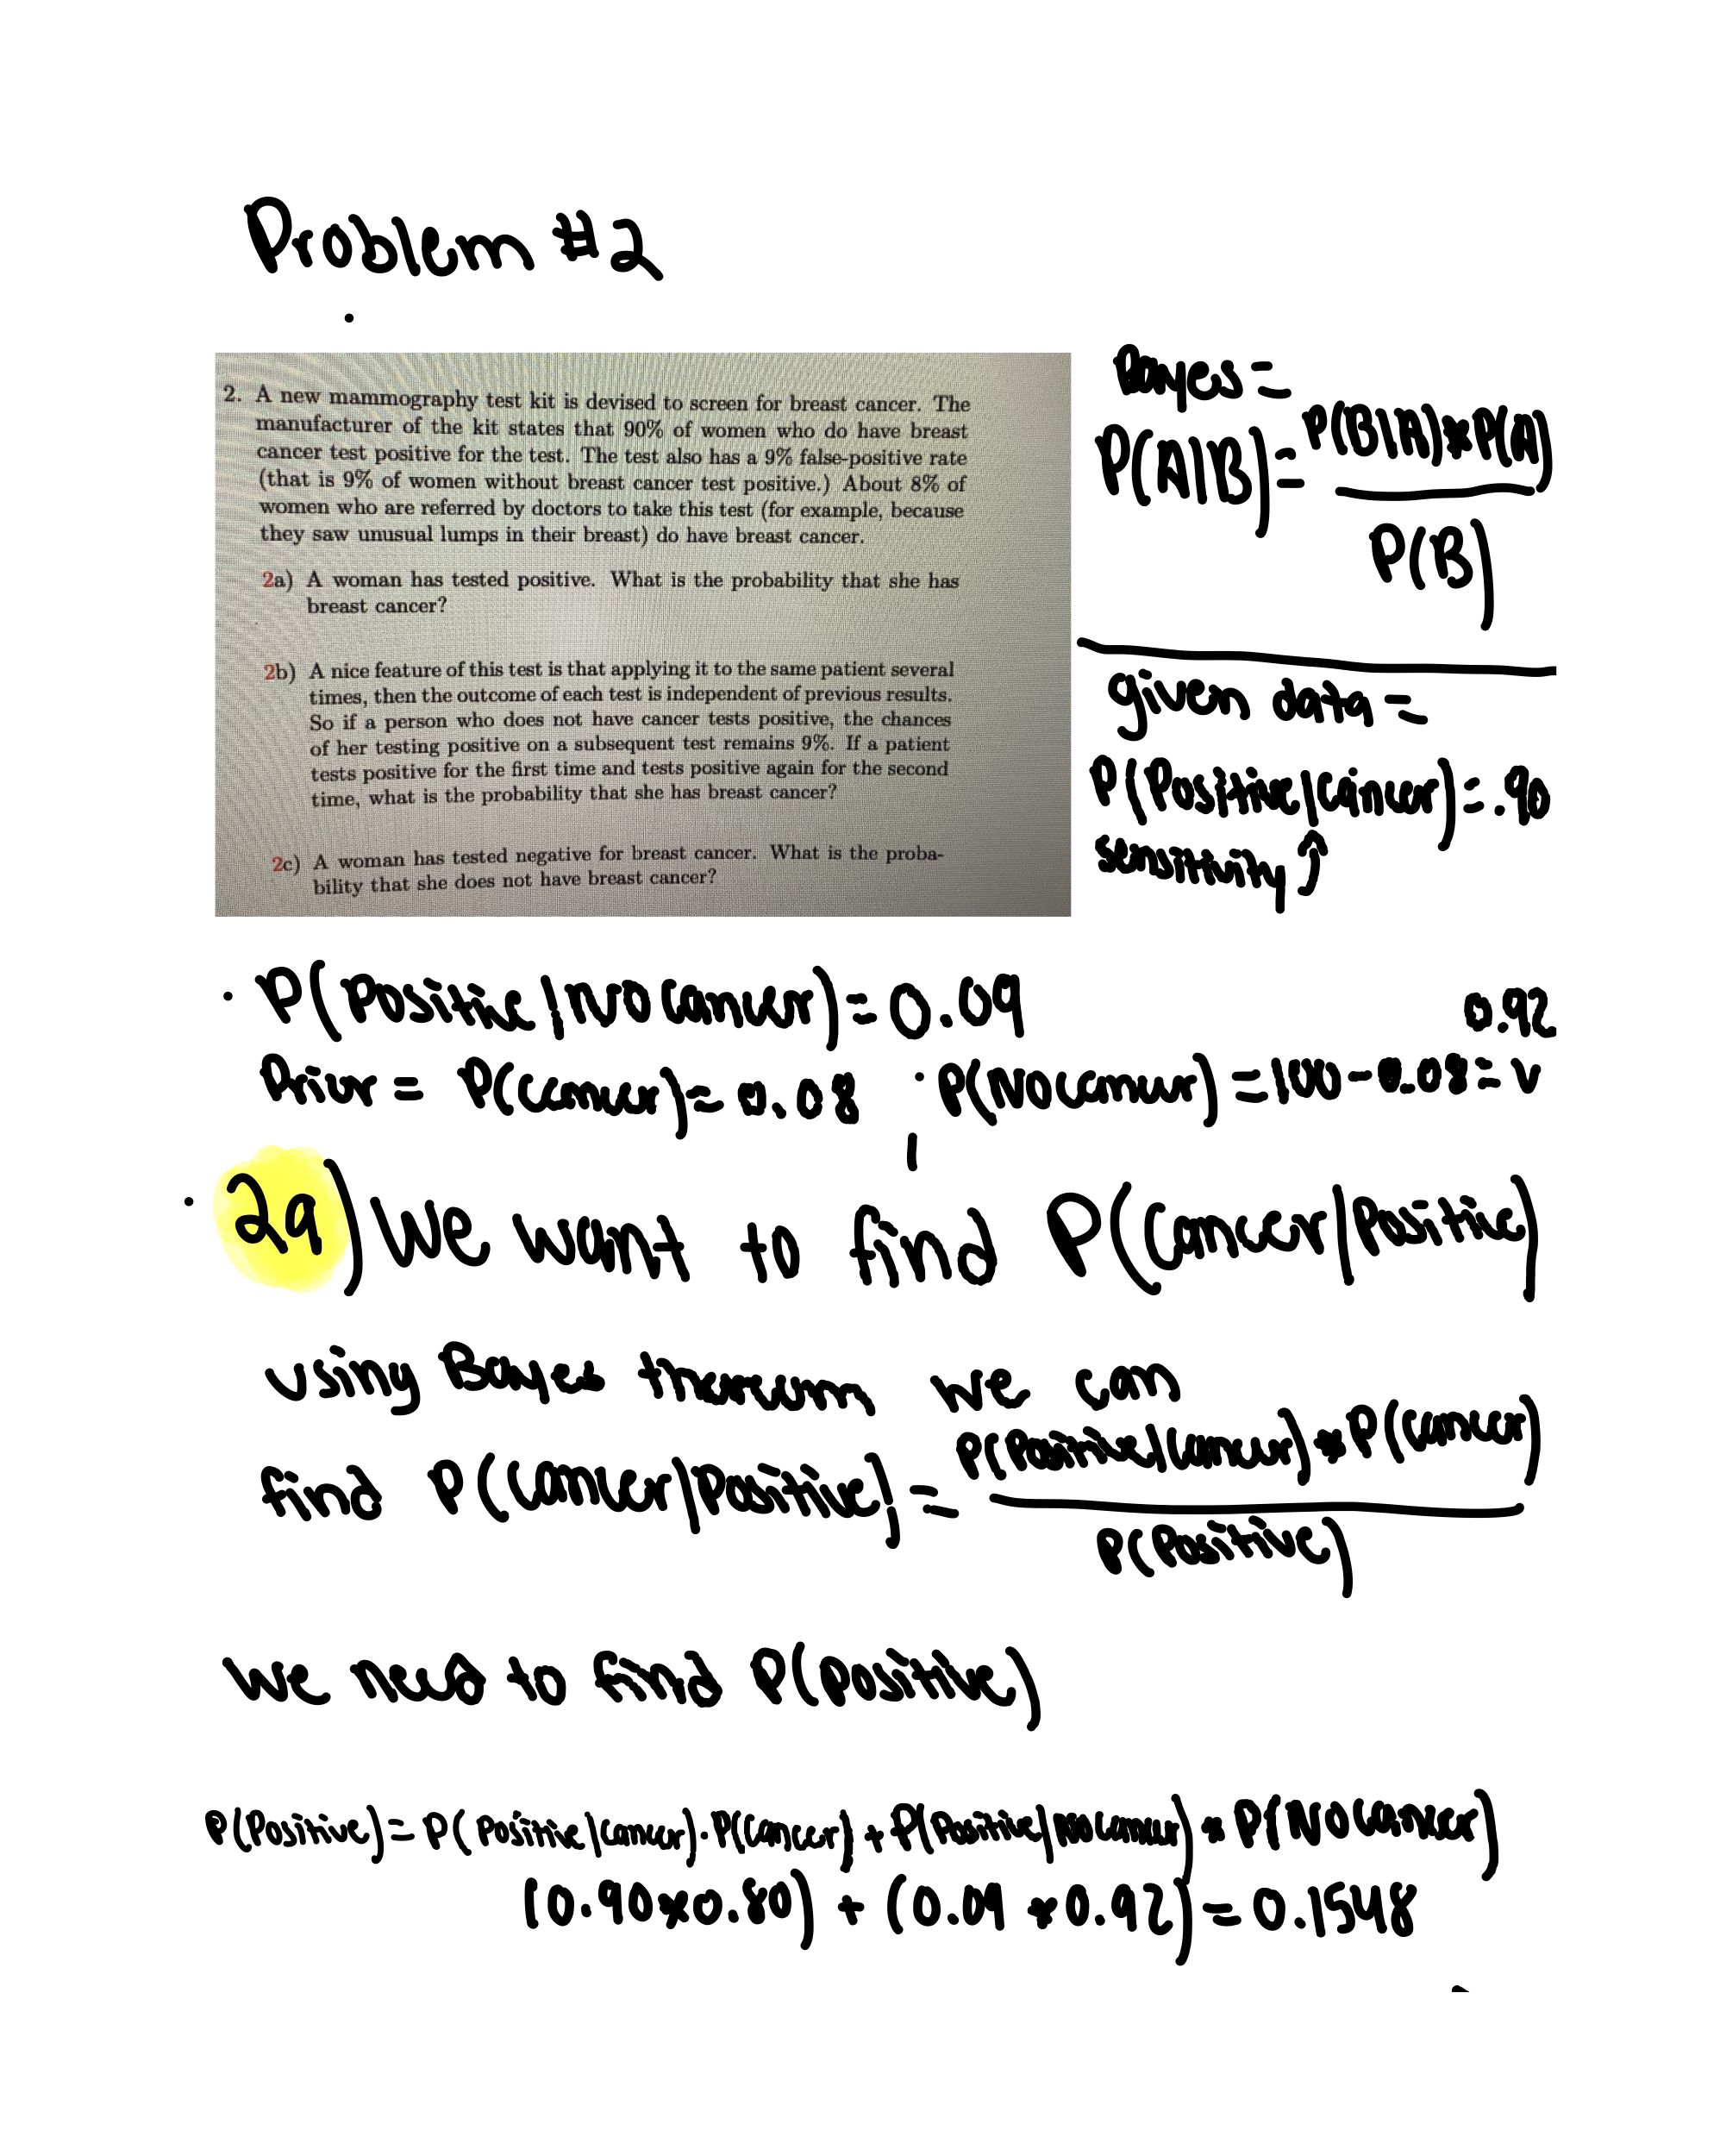 Problem #2
2. A new mammography test kit is devised to screen for breast cancer. The
manufacturer of the kit states that 90% of women who do have breast
cancer test positive for the test. The test also has a 9% false-positive rate
(that is 9% of women without breast cancer test positive.) About 8% of
women who are referred by doctors to take this test (for example, because
they saw unusual lumps in their breast) do have breast cancer.
2a) A woman has tested positive. What is the probability that she has
breast cancer?
2b) A nice feature of this test is that applying it to the same patient several
times, then the outcome of each test is independent of previous results.
So if a person who does not have cancer tests positive, the chances
of her testing positive on a subsequent test remains 9%. If a patient
tests positive for the first time and tests positive again for the second
time, what is the probability that she has breast cancer?
2c) A woman has tested negative for breast cancer. What is the proba-
bility that she does not have breast cancer?
Bayes =
P(A|B) = P(B|A)*P(A)
P(B)
given data =
P(Positive|cancer) = .90
sensitivity ↑
· P(Positive|No cancer) = 0.09
0.92
Prior = P(cancer) = 0.08 · P(No cancer) = 100 - 0.08 =
2a) We want to find P(Cancer|Positive)
using Bayes we can
find P(Cancer|Positive) = P(Positive|Cancer) * P(cancer)
P(Positive)
We need to find P(positive)
P(Positive) = P(Positive|cancer) · P(cancer) + P(Positive|No cancer) * P(No cancer)
(0.90*0.80) + (0.09 *0.92) = 0.1548